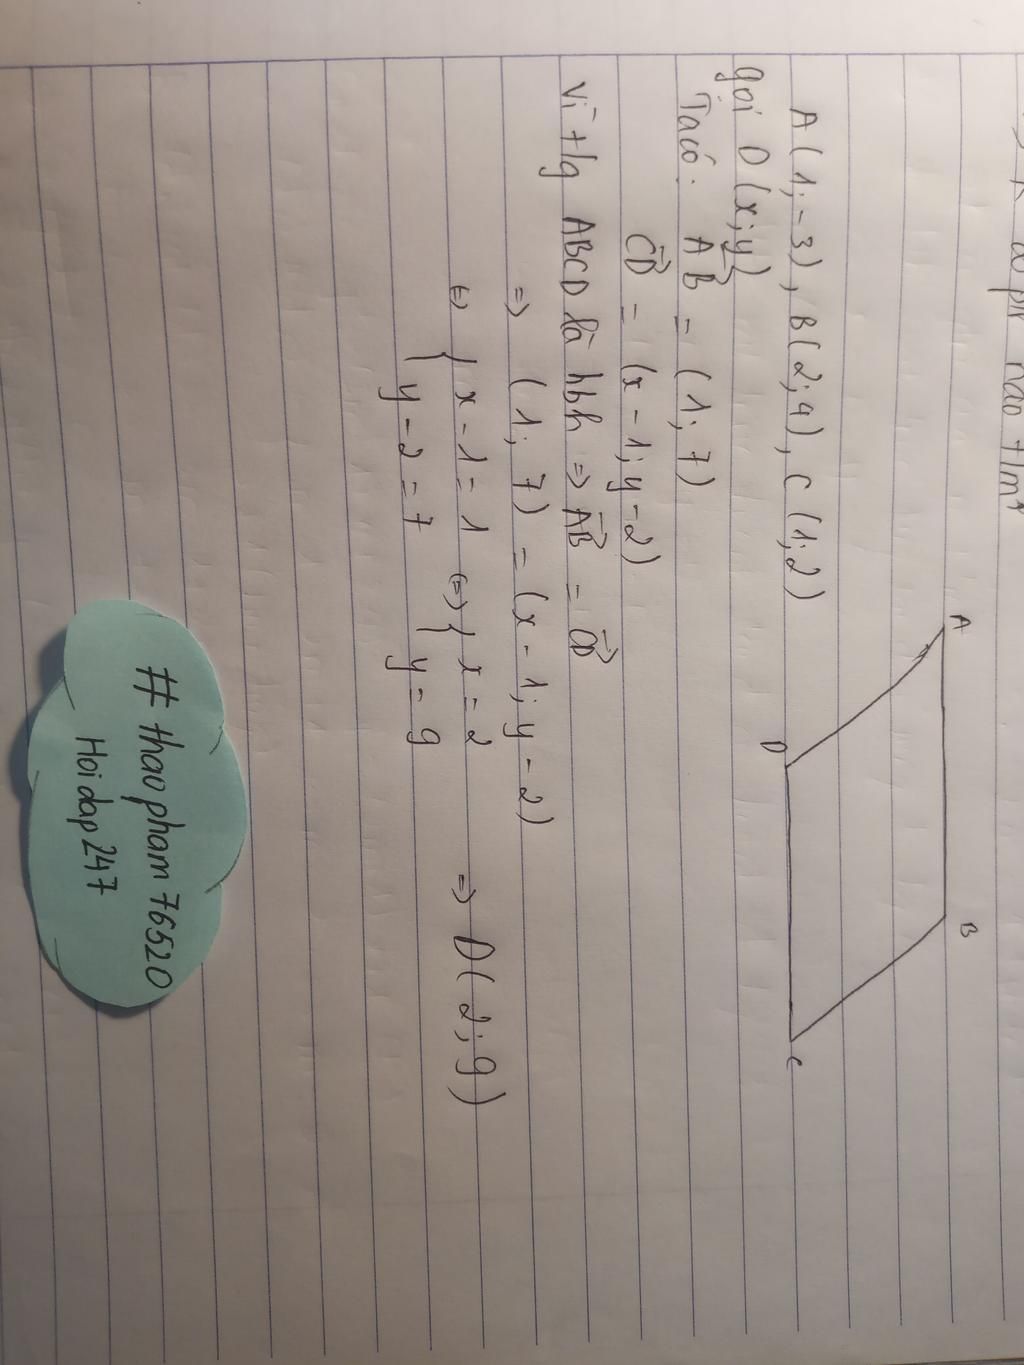 A(1;-3), B(2;4), C(1;2)
A
B
D
C
gọi D(x;y)
Ta có: AB = (1;7)
CD = (x-1;y-2)
Vì tg ABCD là hbh => AB = CD
=> (1;7) = (x-1;y-2)
<=> { x-1=1 <=> { x=2 => D(2;9)
{ y-2=7 { y=9
# thaopham76520
Hoidap247